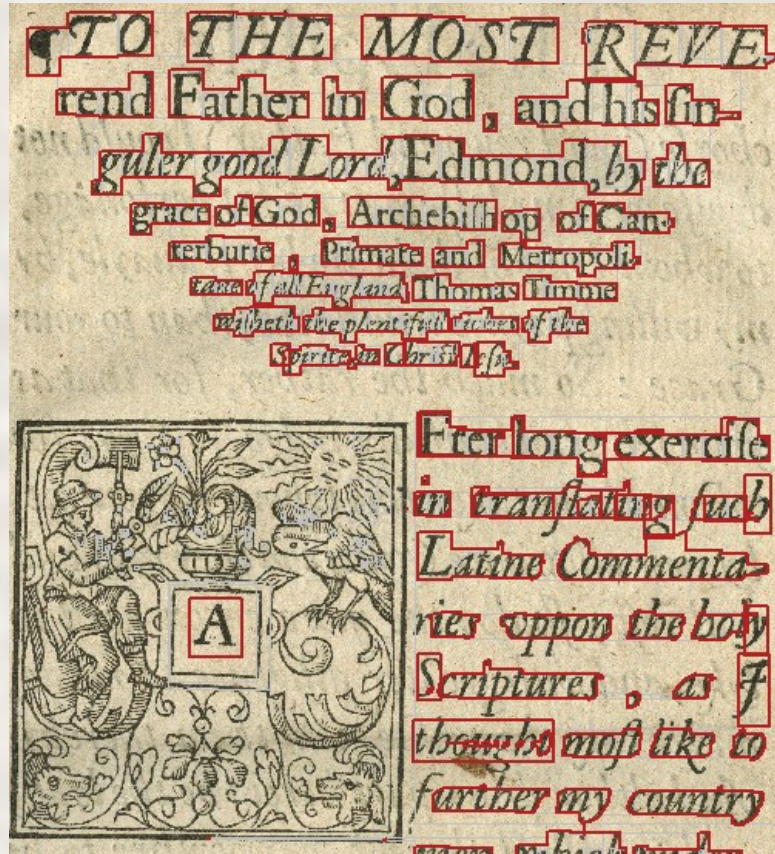 ¶TO THE MOST REVE-
rend Father in God, and his ſin-
guler good Lord, Edmond, by the
grace of God, Archebiſhop of Can-
terburie, Primate and Metropoli-
tane of all England, Thomas Timme
wiſheth the plentifull riches of the
Spirite, in Chriſt Ieſu.
A
Fter long exerciſe
in tranſlating ſuch
Latine Commenta-
ries vppon the holy
Scriptures, as I
thought moſt like to
farther my country
men, which